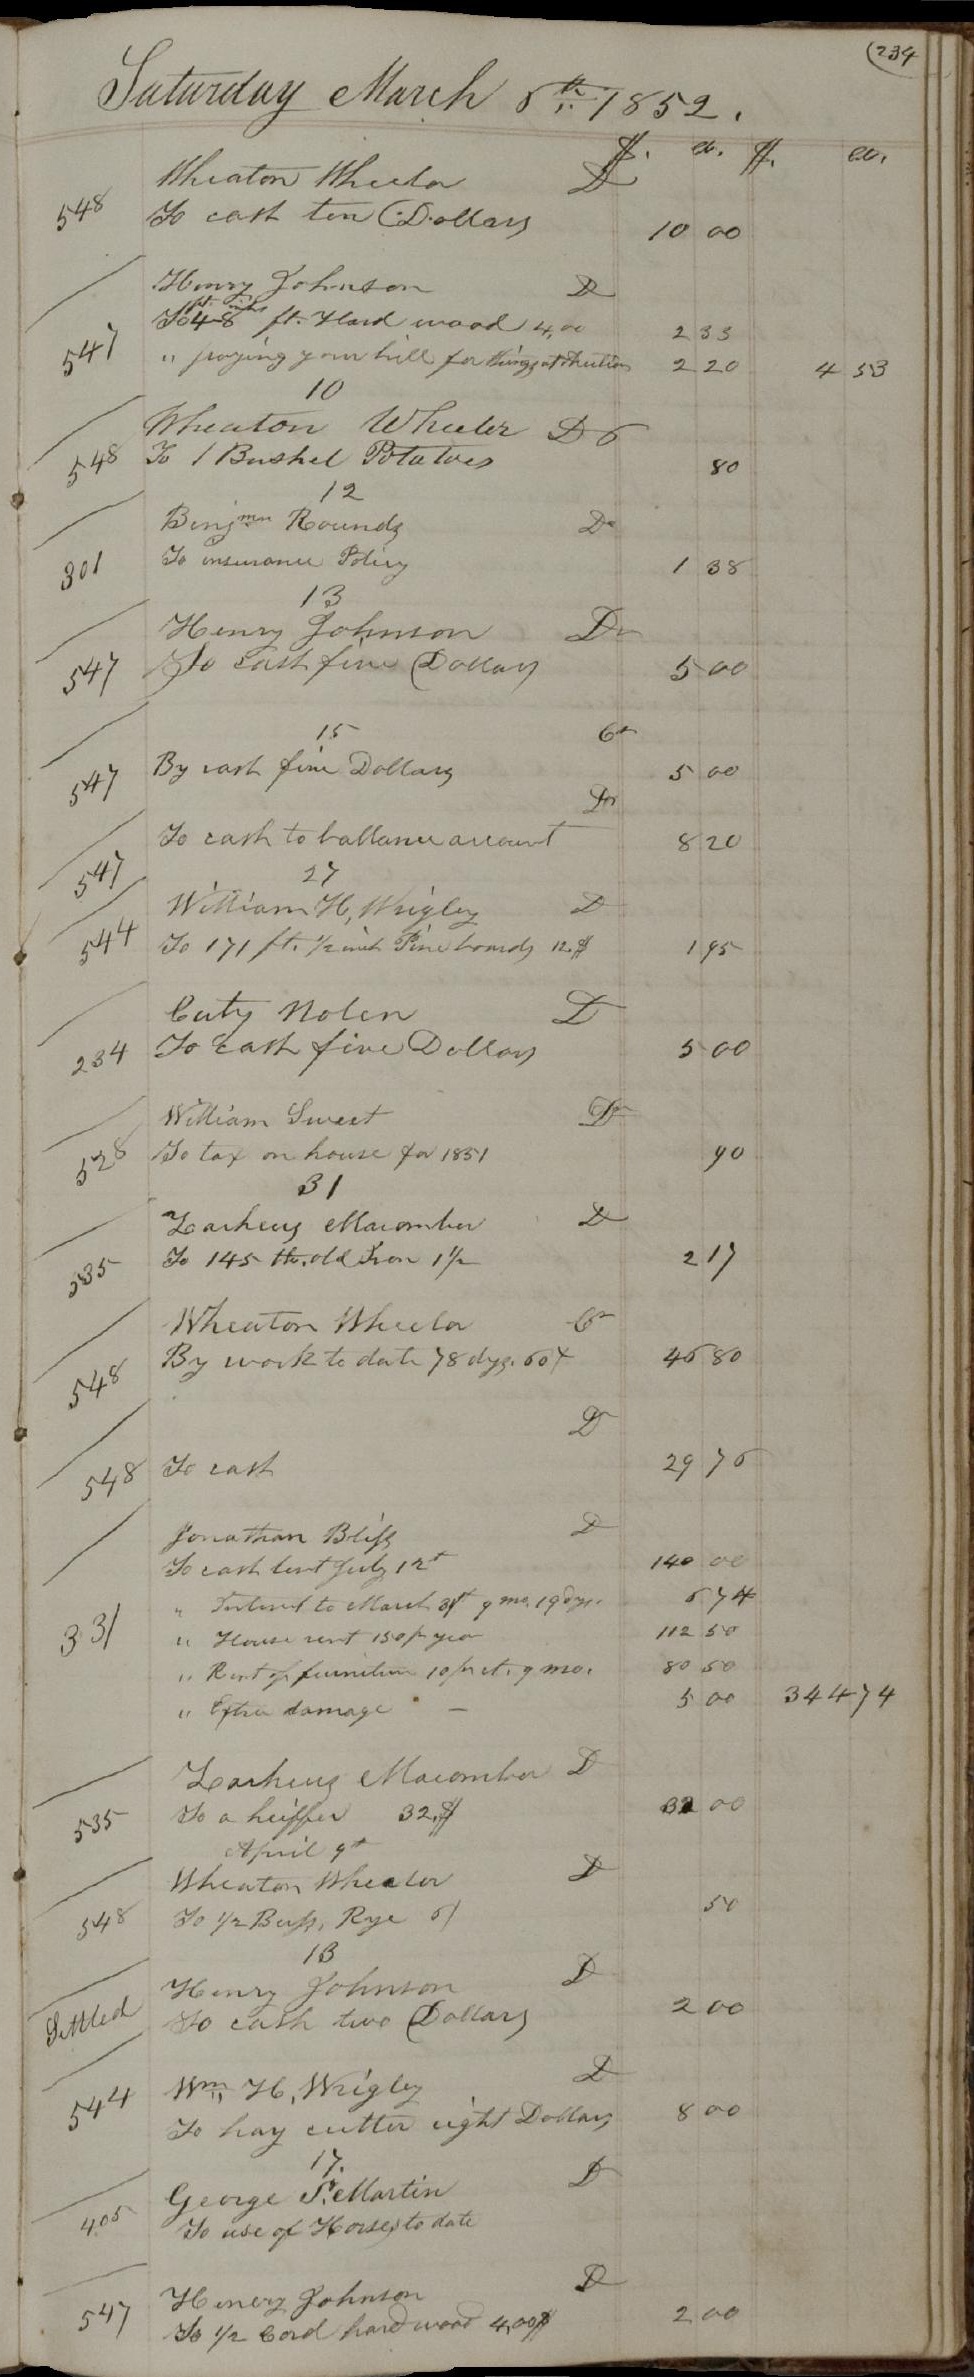 234
Saturday March 6th 1852.
$. cts. $. cts.
Wheaton Wheeler Dr
548 To cash ten Dollars 10 00
Henry Johnson Dr
547 To 4 ft. 8 inchs ft. Hard wood 4,00 2 33
" paying your bill for things at Auction 2 20 4 53
10
Wheaton Wheeler Dr
548 To 1 Bushel Potatoes 80
12
Benjmn Rounds Dr
301 To insurance Policy 1 38
13
Henry Johnson Dr
547 To cash five Dollars 5 00
15 Cr
547 By cash five Dollars 5 00
Dr
547 To cash to ballance account 8 20
27
William H, Wrigley Dr
544 To 171 ft. 1/2 inch Pine boards 12.$ 1 95
Cuty Nolen Dr
234 To cash five Dollars 5 00
William Sweet Dr
528 To tax on house for 1851 90
31
Zacheus Macomber Dr
535 To 145 lb. old Iron 1 1/2 2 17
Wheaton Wheeler Cr
548 By work to date 78 dys. 60¢ 46 80
Dr
548 To cash 29 76
Jonathan Bliss Dr
To cash lent July 12t 140 00
331 " Interest to March 31t 9 mo. 19 dys. 6 74
" House rent 150 pr year 112 50
" Rent of furniture 10 pr ct. 9 mo. 80 50
" Extra damage — 5 00 344 74
Zacheus Macomber Dr
535 To a heiffer 32.$ 32 00
April 9t
Wheaton Wheeler Dr
548 To 1/2 Bush, Rye 6/ 50
13
Henry Johnson Dr
Settled To cash two Dollars 2 00
Wm H, Wrigley Dr
544 To hay cutter eight Dollars 8 00
17.
George S. Martin Dr
405 To use of Horses to date
Henery Johnson Dr
547 To 1/2 Cord hard wood 4,00$ 2 00